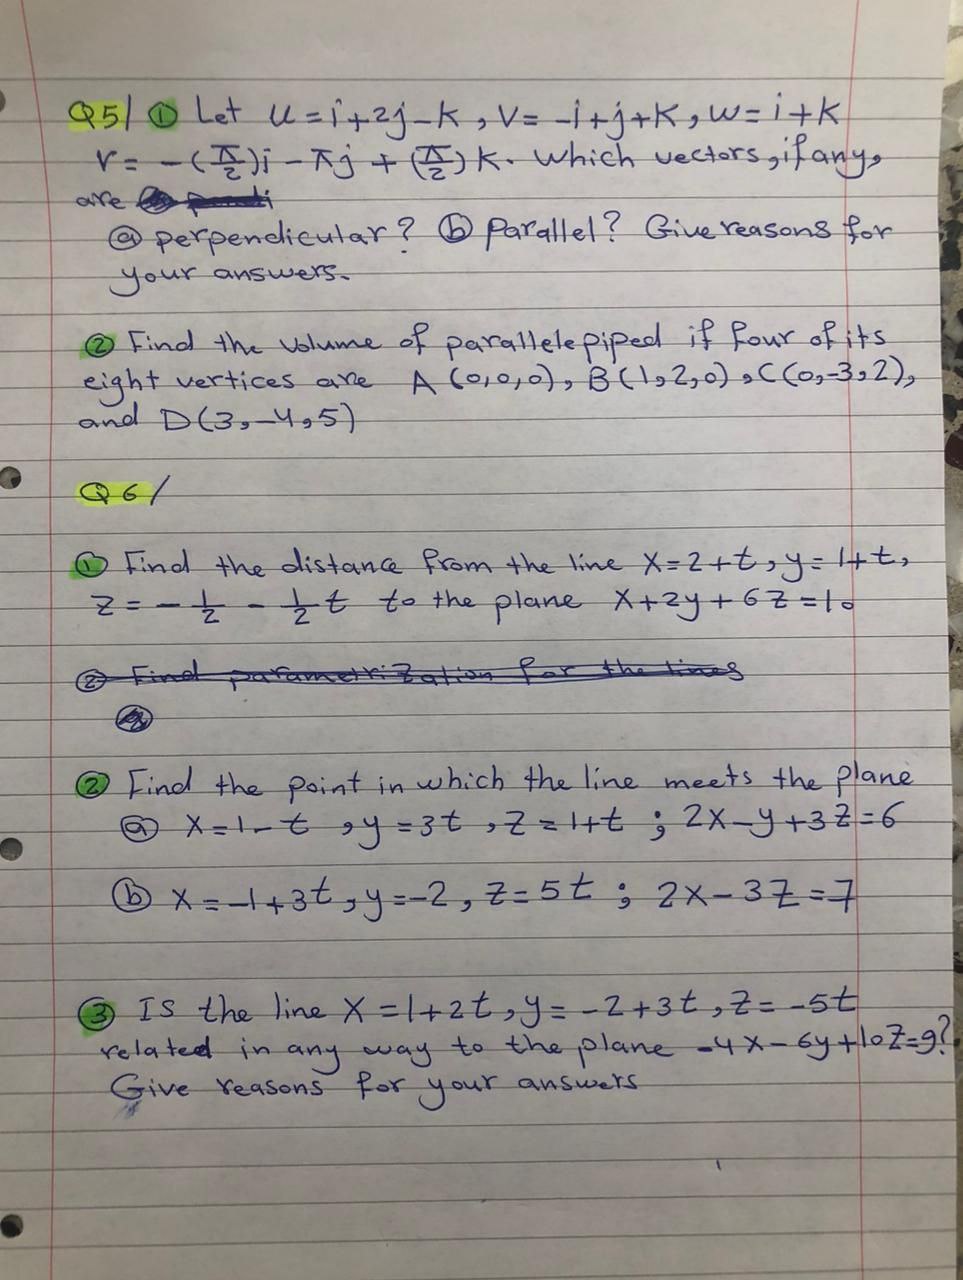 Q5/ ① Let u=i+2j-k, v= -i+j+k, w=i+k
r= -(π/2)i - πj + (π/2)k. Which vectors, if any,
are
ⓐ perpendicular? ⓑ Parallel? Give reasons for
your answers.
② Find the volume of parallelepiped if four of its
eight vertices are A(0,0,0), B(1,2,0), C(0,-3,2),
and D(3,-4,5)
Q6/
① Find the distance from the line x=2+t, y=1+t,
z= -1/2 - 1/2 t to the plane x+2y+6z=10
② Find parametrization for the lines
② Find the point in which the line meets the plane
ⓐ x=1-t, y=3t, z=1+t; 2x-y+3z=6
ⓑ x=-1+3t, y=-2, z=5t; 2x-3z=7
③ Is the line x=1+2t, y=-2+3t, z=-5t
related in any way to the plane -4x-6y+10z=9?
Give reasons for your answers